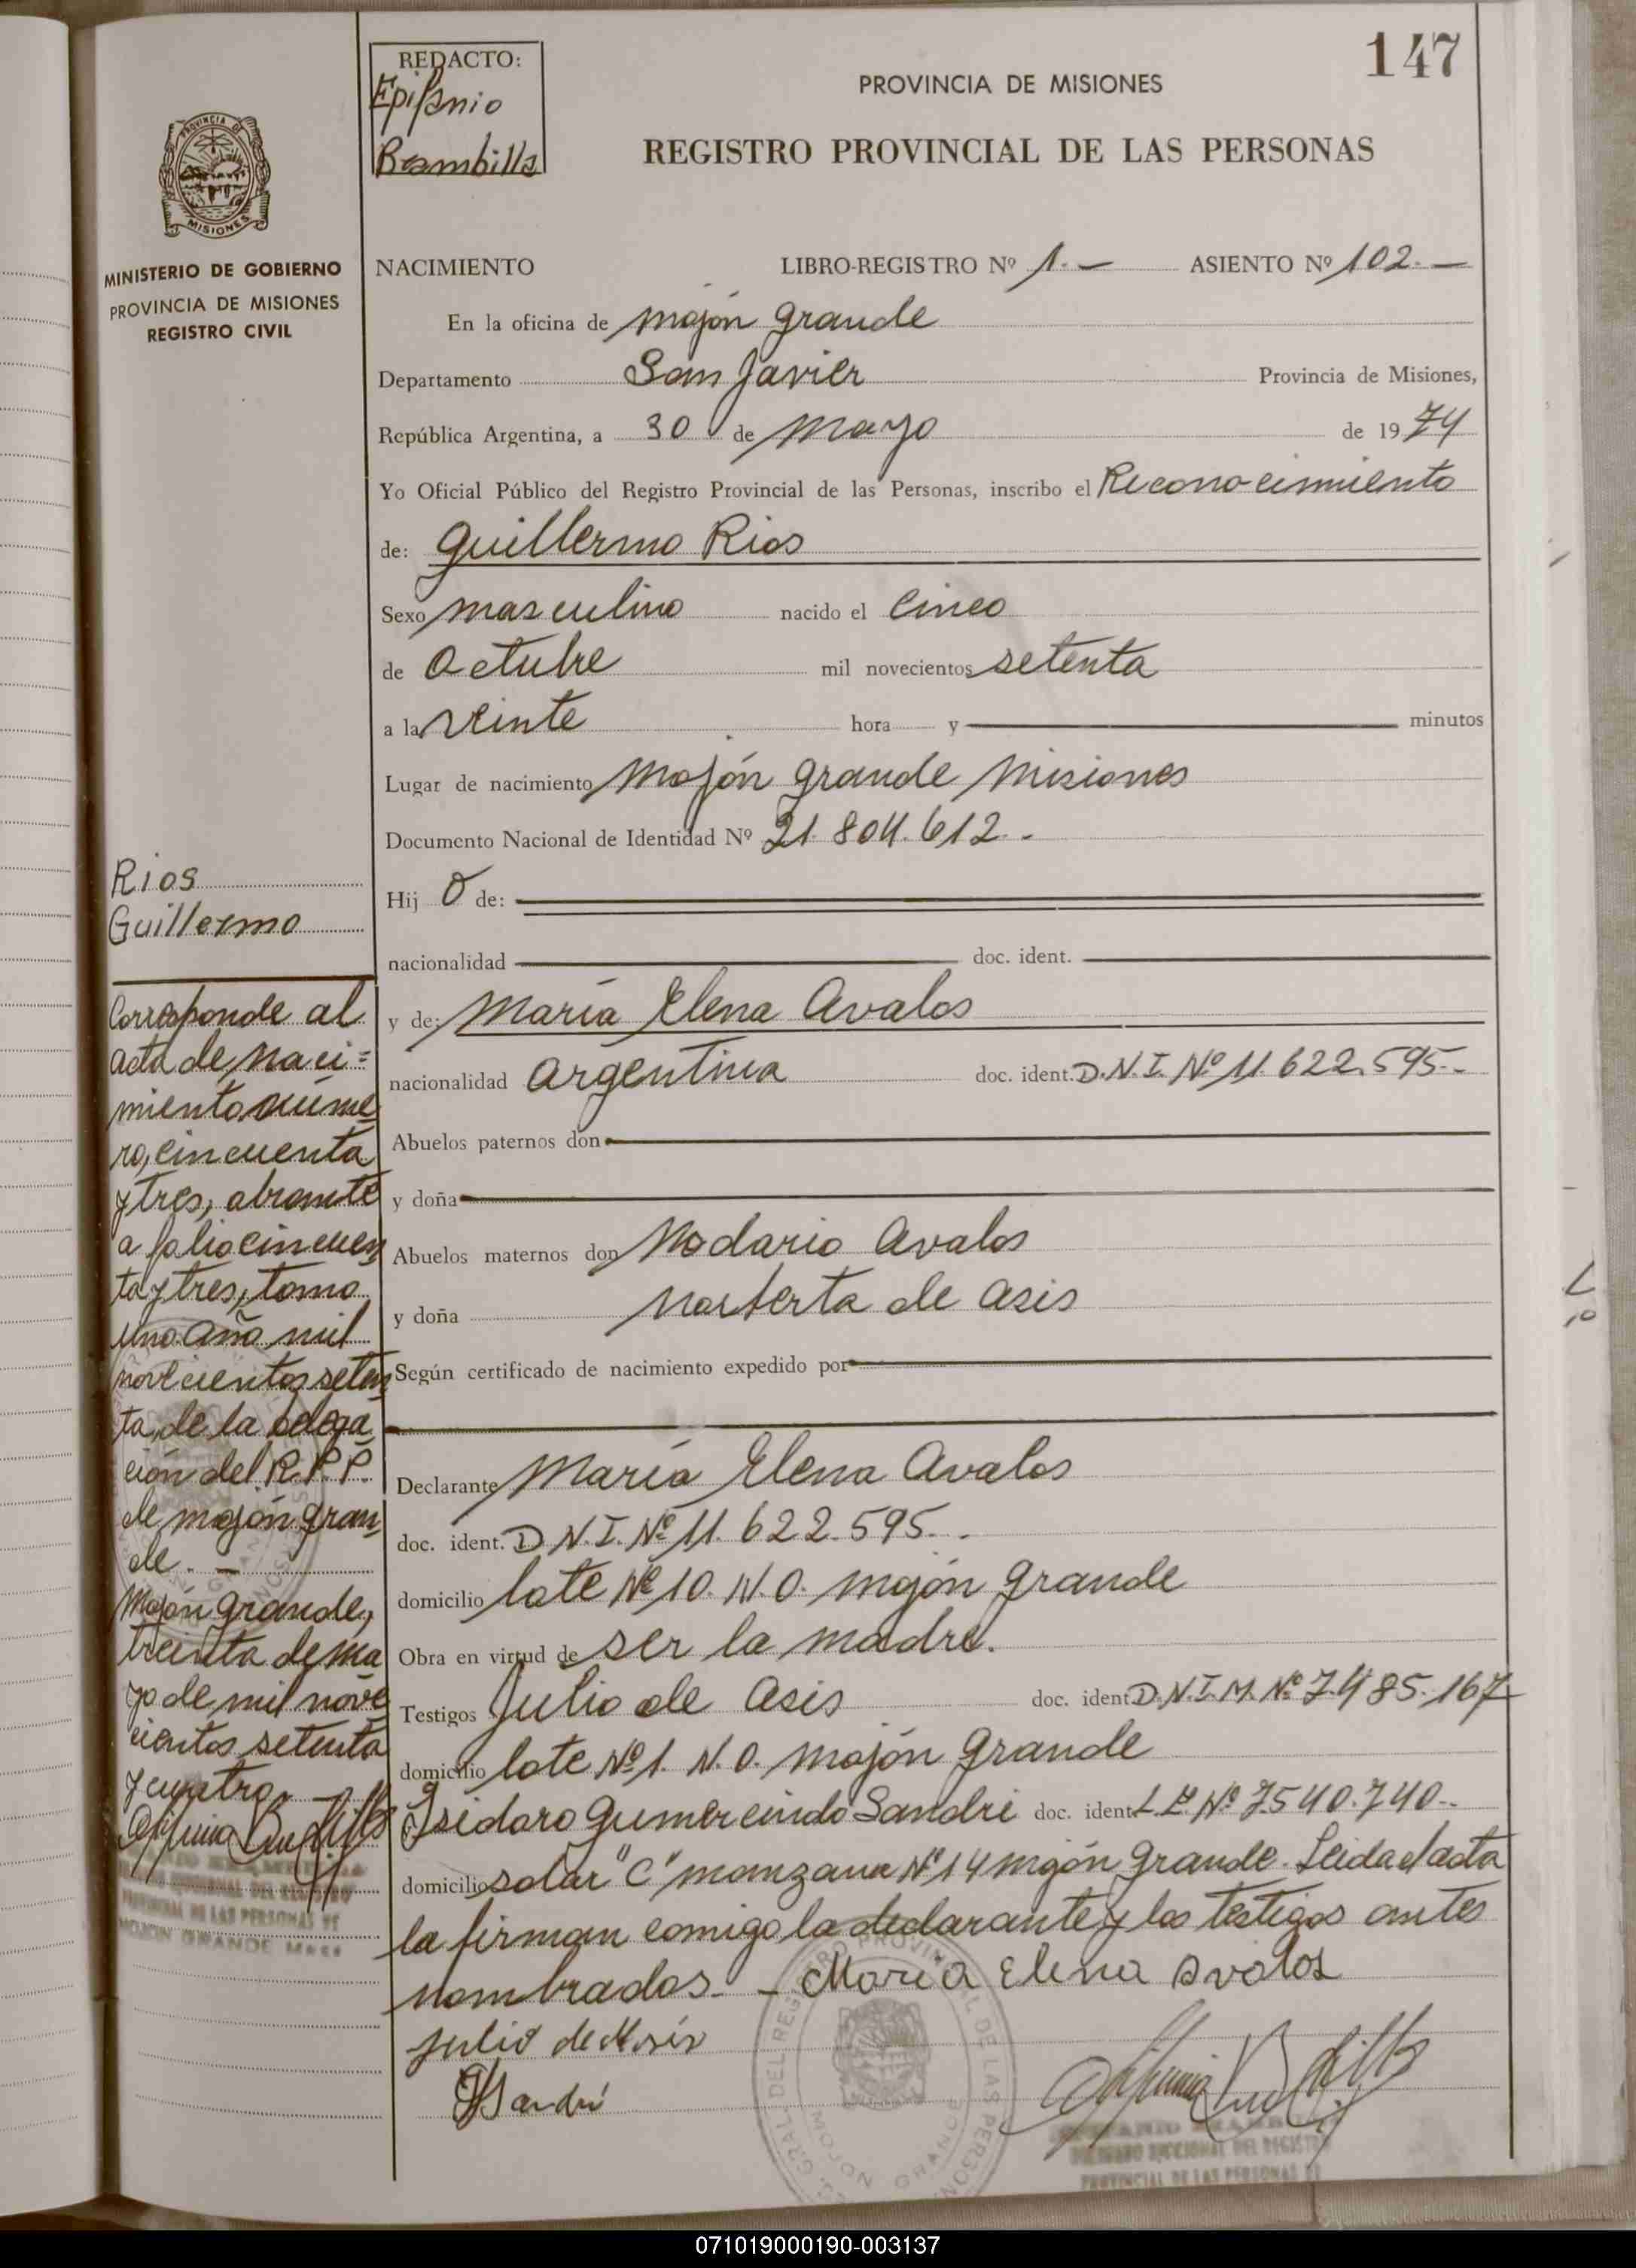 147
REDACTO:
Epifanio
Brambilla
PROVINCIA DE MISIONES
REGISTRO PROVINCIAL DE LAS PERSONAS
PROVINCIA DE
MISIONES
MINISTERIO DE GOBIERNO
PROVINCIA DE MISIONES
REGISTRO CIVIL
NACIMIENTO LIBRO-REGISTRO Nº 1.- ASIENTO Nº 102.-
En la oficina de Mojón Grande
Departamento San Javier Provincia de Misiones,
República Argentina, a 30 de Mayo de 1974
Yo Oficial Público del Registro Provincial de las Personas, inscribo el Reconocimiento
de: Guillermo Rios
Sexo masculino nacido el Cinco
de Octubre mil novecientos setenta
a la veinte hora y minutos
Lugar de nacimiento Mojón Grande Misiones
Documento Nacional de Identidad Nº 21.804.612.-
Hij o de:
nacionalidad doc. ident.
y de: María Elena Avalos
nacionalidad Argentina doc. ident. D.N.I. Nº 11.622.595.-
Abuelos paternos don
y doña
Abuelos maternos don Nodario Avalos
y doña Norberta de Asis
Según certificado de nacimiento expedido por
Declarante María Elena Avalos
doc. ident. D.N.I. Nº 11.622.595.-
domicilio lote Nº 10. N.O. Mojón Grande
Obra en virtud de ser la madre.
Testigos Julio de Asis doc. ident. D.N.I.M. Nº 7.485.167
domicilio lote Nº 1. N.O. Mojón Grande
Isidoro Gumercindo Sandri doc. ident. L.E. Nº 7.540.740.-
domicilio solar "C" manzana Nº 14 Mojón Grande. Leida el acta
la firman comigo la declarante y los testigos antes
nombrados.- Maria Elena Avalos
Julio de Asis
Sandri
Rios
Guillermo
Corresponde al
acta de naci=
miento núme
ro, cincuenta
y tres, obrante
a folio cincuen
ta y tres, tomo
uno año mil
novecientos seten
ta, de la Delega
ción del R.P.P.
de Mojón Gran
de.-
Mojón Grande,
treinta de ma
yo de mil nove
cientos setenta
y cuatro.-
PROVINCIAL DE LAS PERSONAS DE
MOJON GRANDE
DELEGADO SECCIONAL DEL REGISTRO
PROVINCIAL DE LAS PERSONAS DE
071019000190-003137